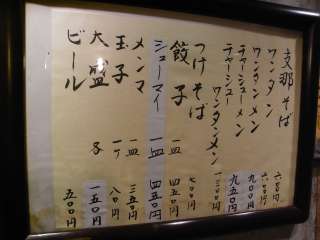 支那そば 六〇〇円
ワンタン 六〇〇円
ワンタンメン 九〇〇円
チャーシューメン 九五〇円
チャーシューワンタンメン 一二〇〇円
つけそば 七〇〇円
餃子 一皿 四五〇円
シューマイ 一皿 四五〇円
メンマ 一皿 三五〇円
玉子 一ケ 八〇円
大盛 一五〇円
ビール 五〇〇円